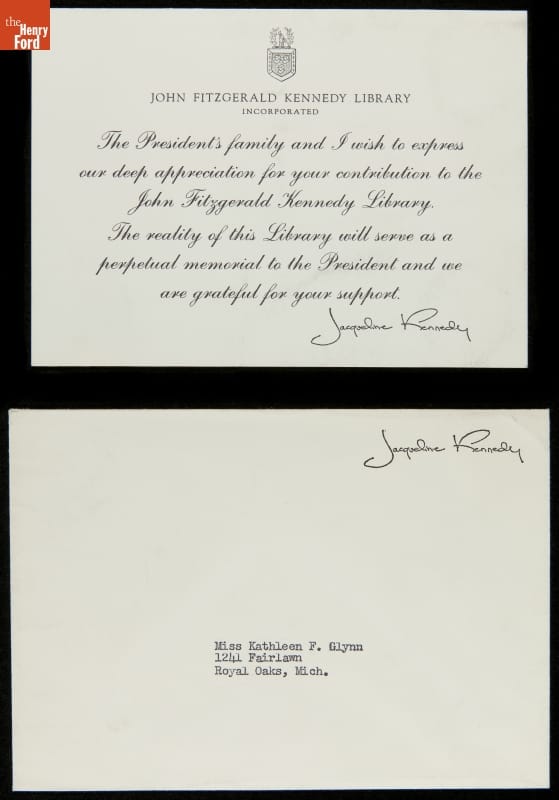 the
Henry
Ford
JOHN FITZGERALD KENNEDY LIBRARY
INCORPORATED
The President's family and I wish to express
our deep appreciation for your contribution to the
John Fitzgerald Kennedy Library.
The reality of this Library will serve as a
perpetual memorial to the President and we
are grateful for your support.
Jacqueline Kennedy
Jacqueline Kennedy
Miss Kathleen F. Glynn
1241 Fairlawn
Royal Oaks, Mich.